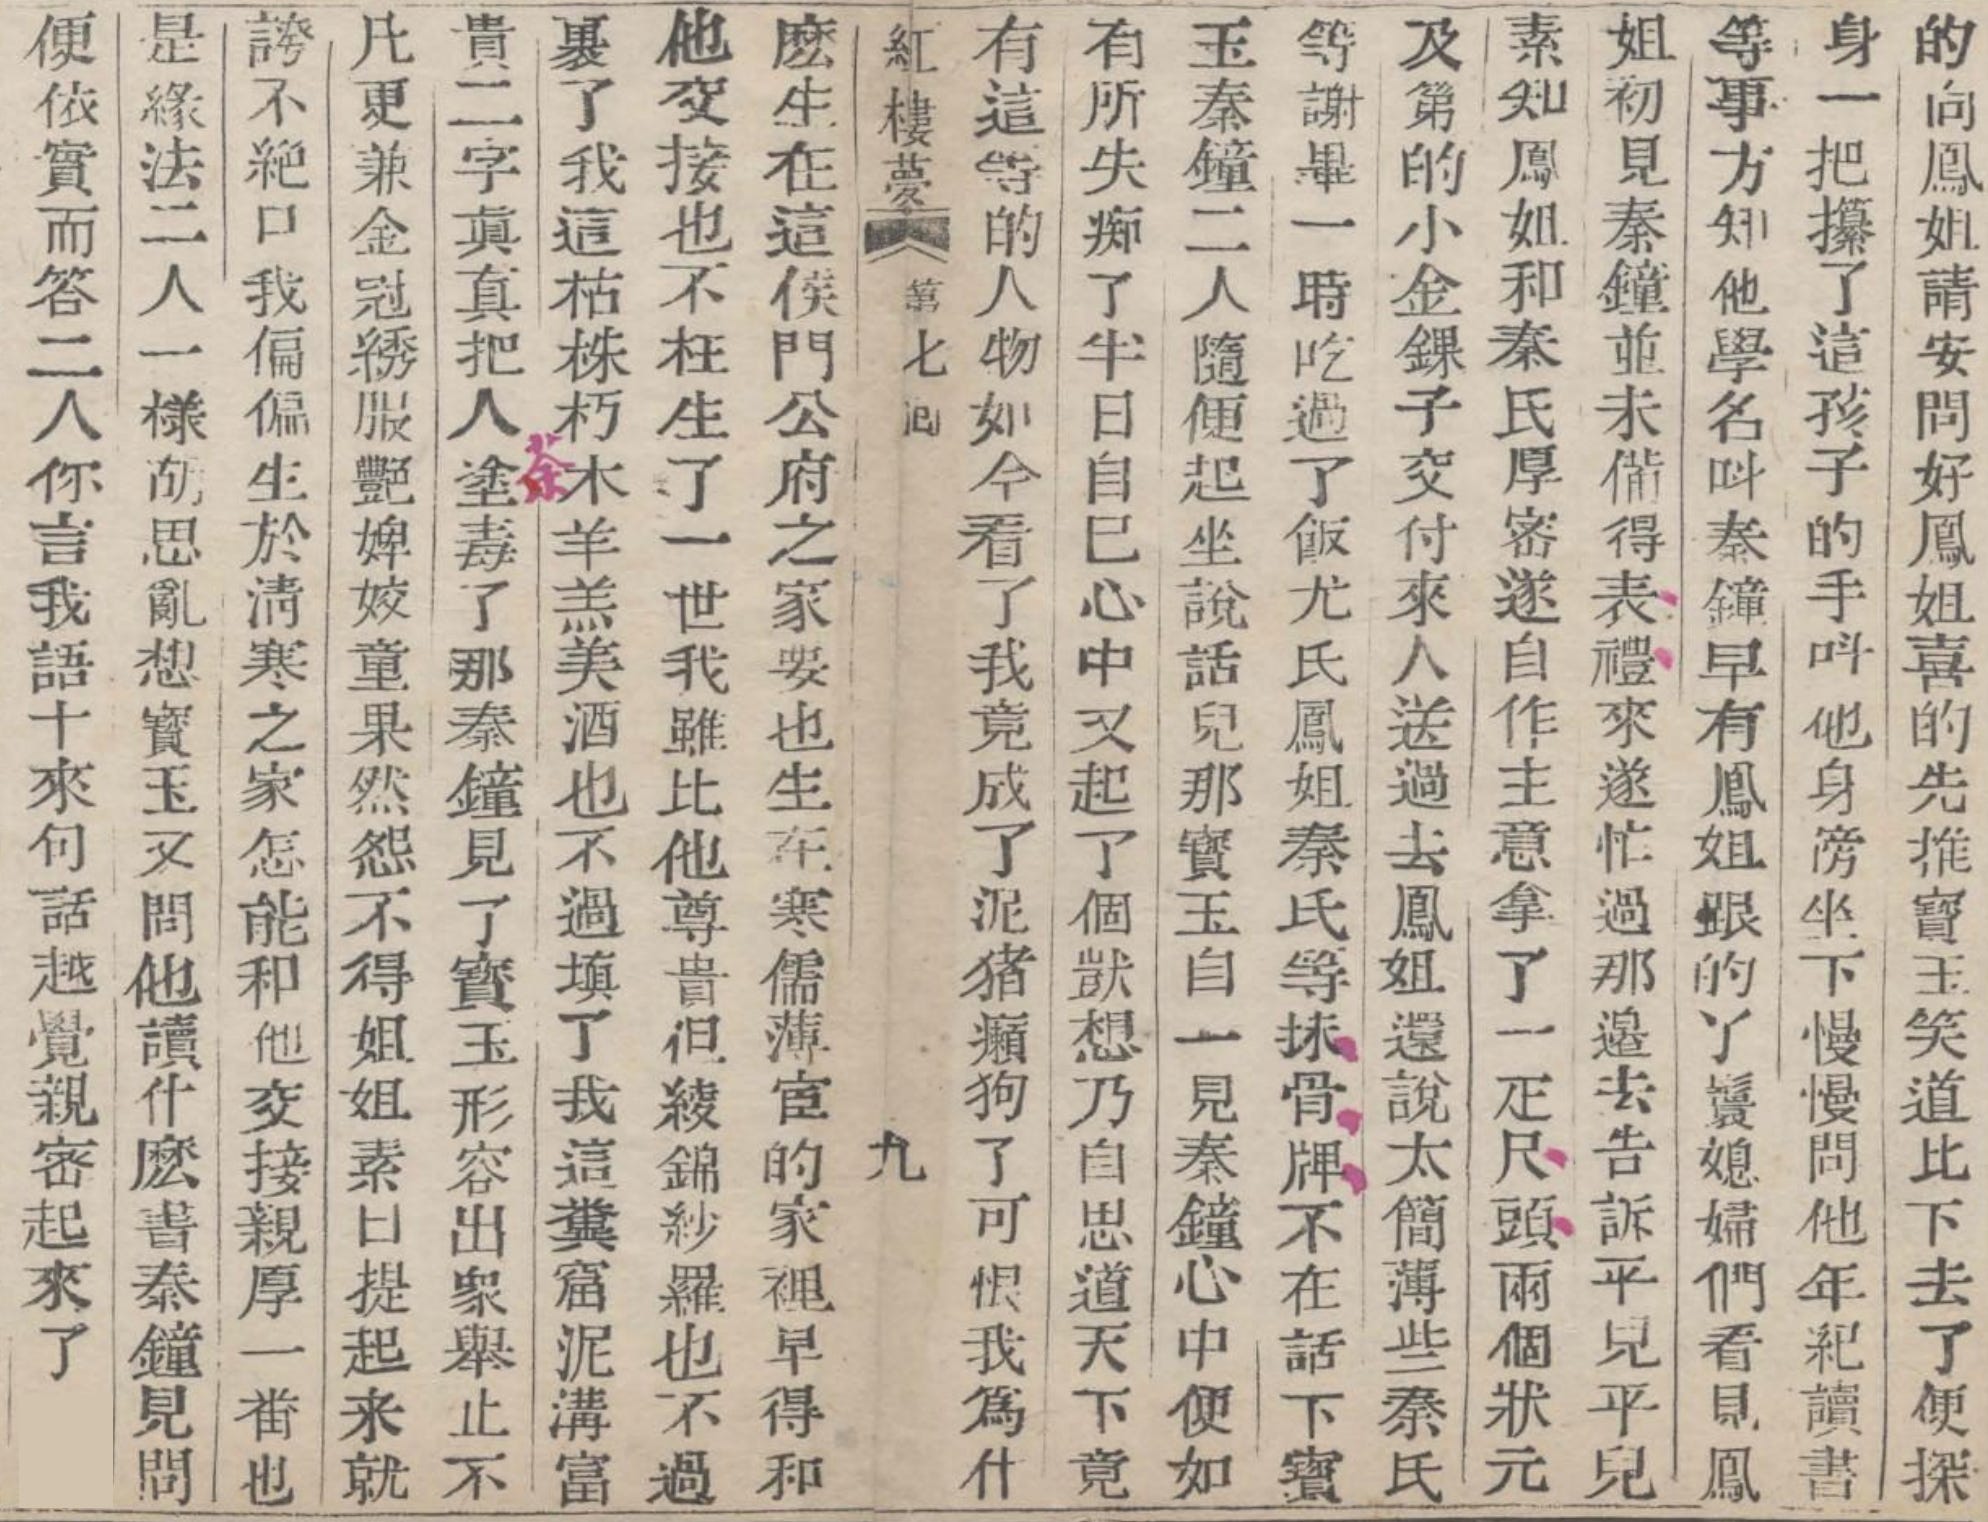 的向鳳姐請安問好鳳姐喜的先推寶玉笑道比下去了便探
身一把攥了這孩子的手呌他身傍坐下慢慢問他年紀讀書
等事方知他學名呌秦鐘早有鳳姐跟的丫鬟媳婦們看見鳳
姐初見秦鐘並未偹得表禮來遂忙過那邉去告訴平兒平兒
素知鳳姐和秦氏厚宻遂自作主意拿了一疋尺頭兩個狀元
及第的小金錁子交付來人送過去鳳姐還說太簡薄些秦氏
等謝畢一時吃過了飯尤氏鳳姐秦氏等抹骨牌不在話下寳
玉秦鐘二人隨便起坐說話兒那寳玉自一見秦鐘心中便如
有所失痴了半日自巳心中又起了個獃想乃自思道天下竟
有這等的人物如今看了我竟成了泥猪癩狗了可恨我爲什
紅樓夢 第七囘 九
麽生在這侯門公府之家要也生在寒儒薄宦的家裡早得和
他交接也不枉生了一世我雖比他尊貴但綾錦紗羅也不過
裹了我這枯株朽木羊羔美酒也不過塡了我這糞窟泥溝富
貴二字眞真把人塗毒了那秦鐘見了寳玉形容出衆舉止不
荼
凡更兼金冠綉服艷婢姣童果然怨不得姐姐素日提起来就
誇不絶口我偏偏生於清寒之家怎能和他交接親厚一畨也
是緣法二人一樣胡思亂想寳玉又問他讀什麽書秦鐘見問
便依實而答二人你言我語十來句話越覺親宻起來了